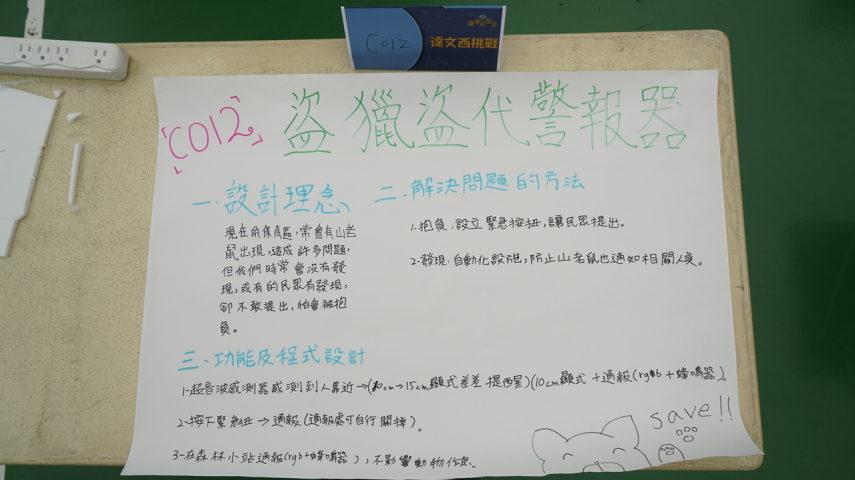 C012
達文西挑戰
「C012」
盜獵盜代警報器
一.設計理念
現在保育區,常會有山老
鼠出現,造成許多問題,
但我們時常會沒有發
現,或有的民眾有發現,
卻不敢提出,怕會被抱
負。
二.解決問題的方法
1.抱負:設立緊急按扭,讓民眾提出。
2.發現:自動化設施,防止山老鼠也通知相關人員。
三.功能及程式設計
1.超音波感測器感測到人靠近→(20cm→15cm顯式差差提西星)(10cm顯式+通報(rgb+蜂鳴器)。
2.按下緊急扭→通報(通報處可自行關掉)。
3.在森林小站通報(rgb+蜂鳴器),不影響動物作息。
save!!